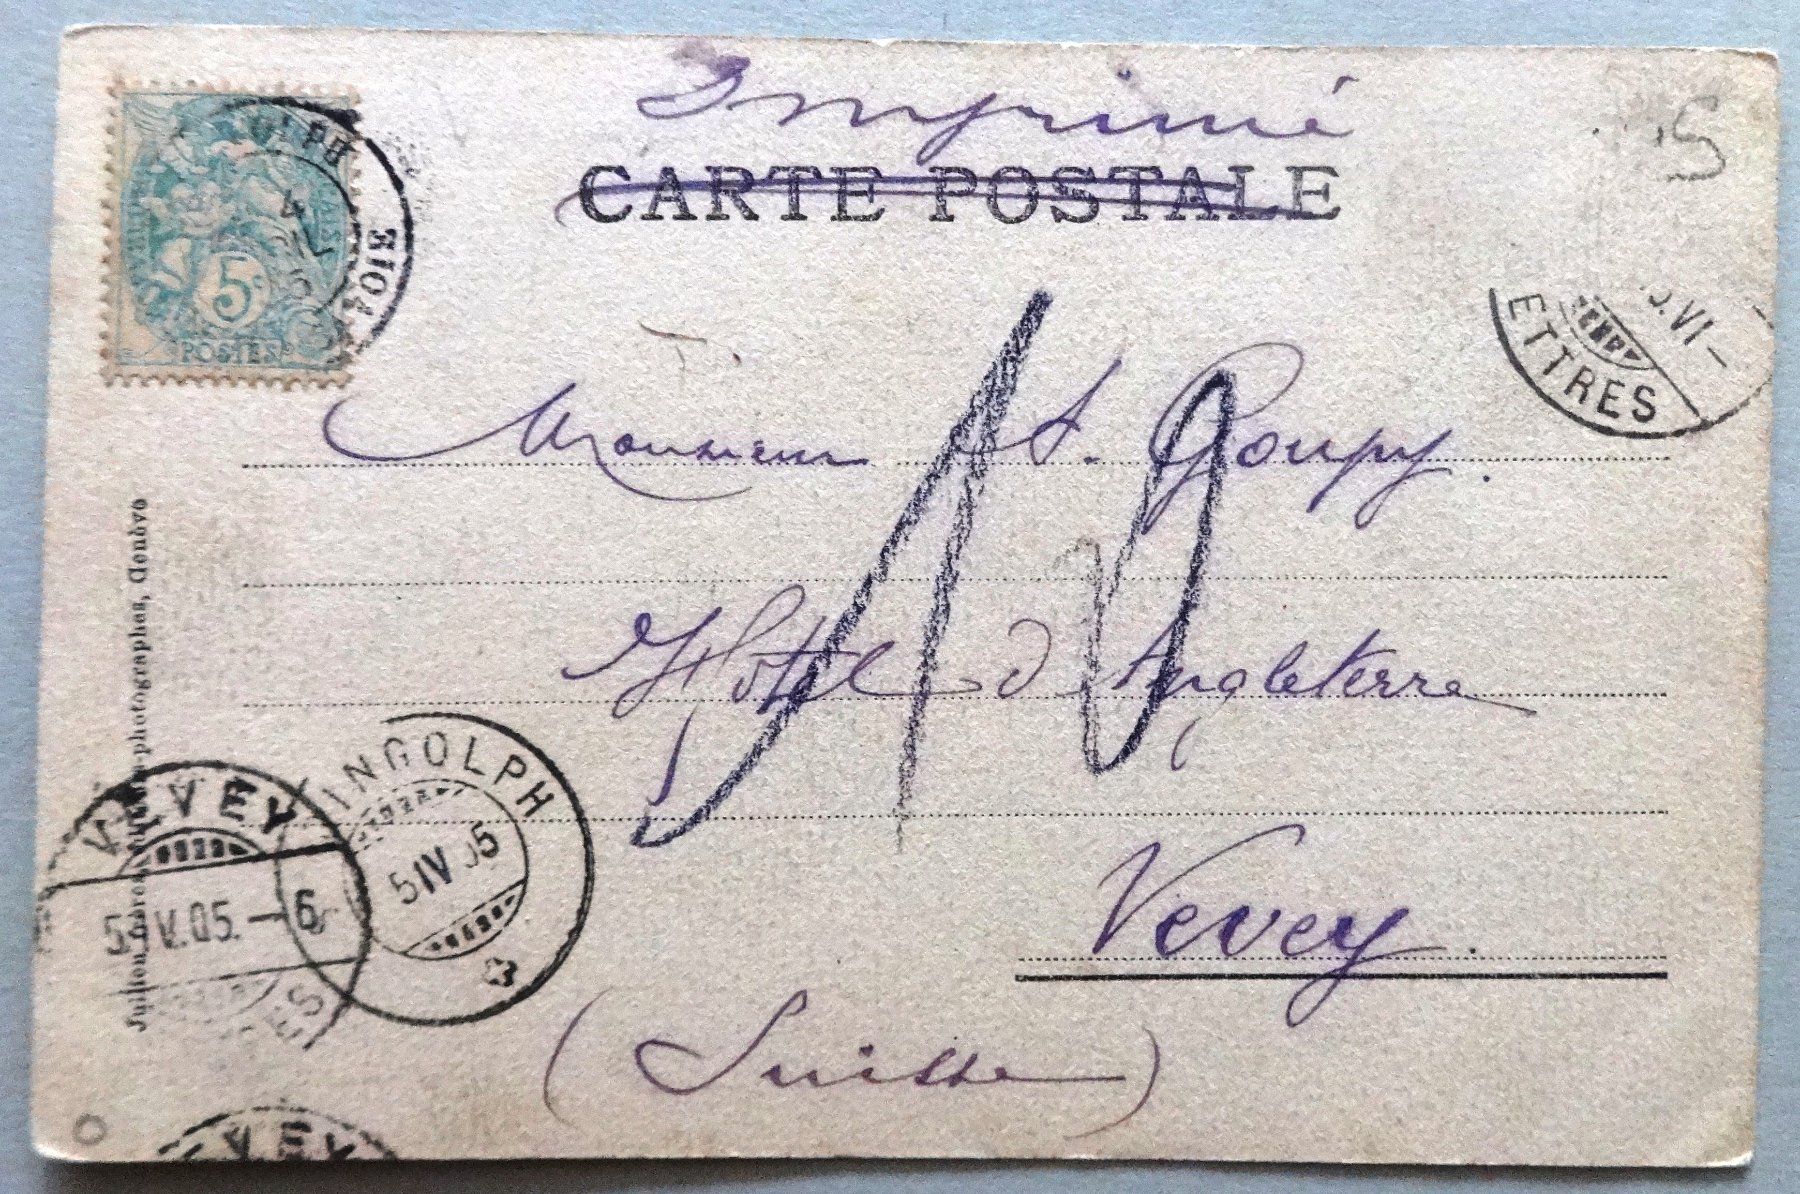 Imprimé
CARTE POSTALE
5
5c
POSTES
4
VOIE
ETTRES
VI
Monsieur A. Goupy.
10
Hôtel d'Angleterre
Vevey.
(Suisse)
Jullien frères, photographes, Genève
VEVEY
5 IV.05.-6
INGOLPH
5 IV 05
VEVEY